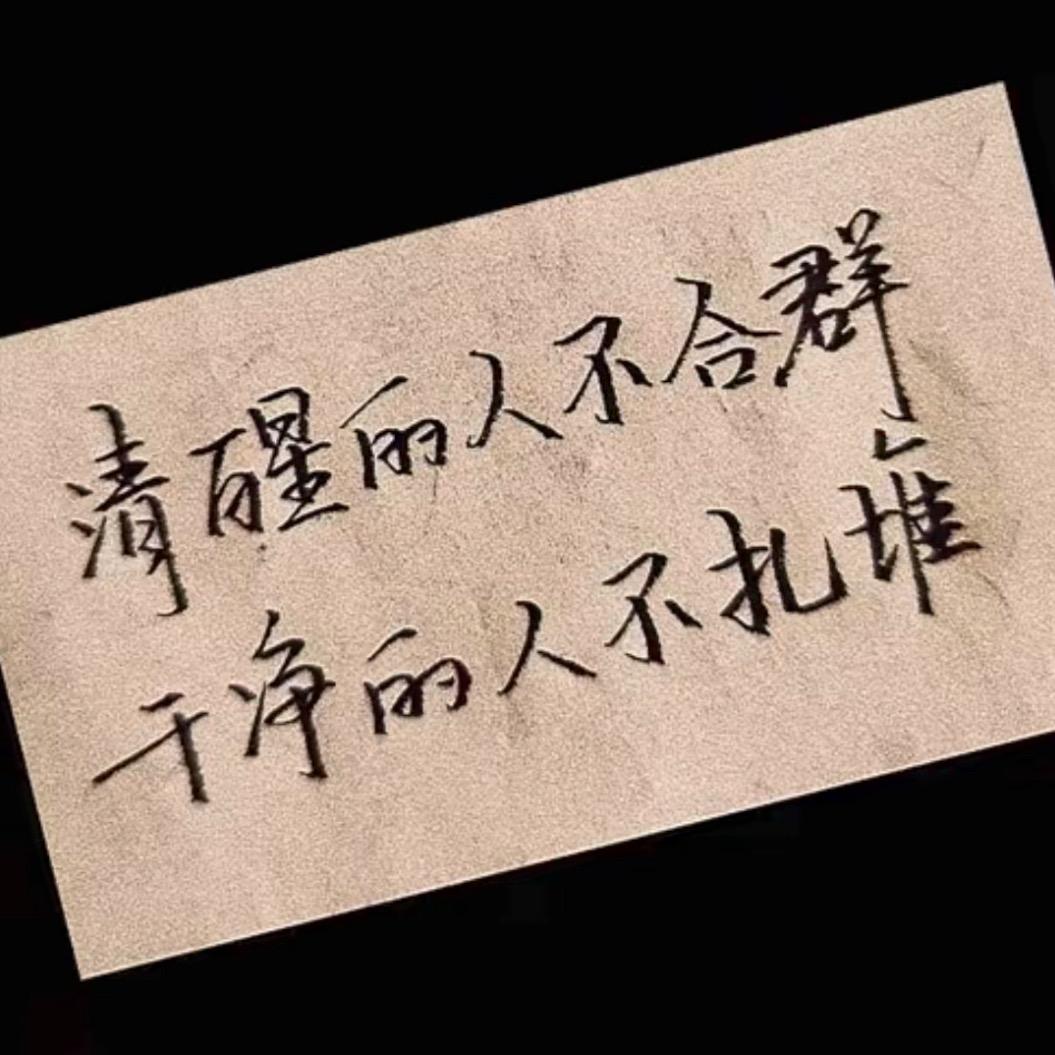 清醒的人不合群
干净的人不扎堆